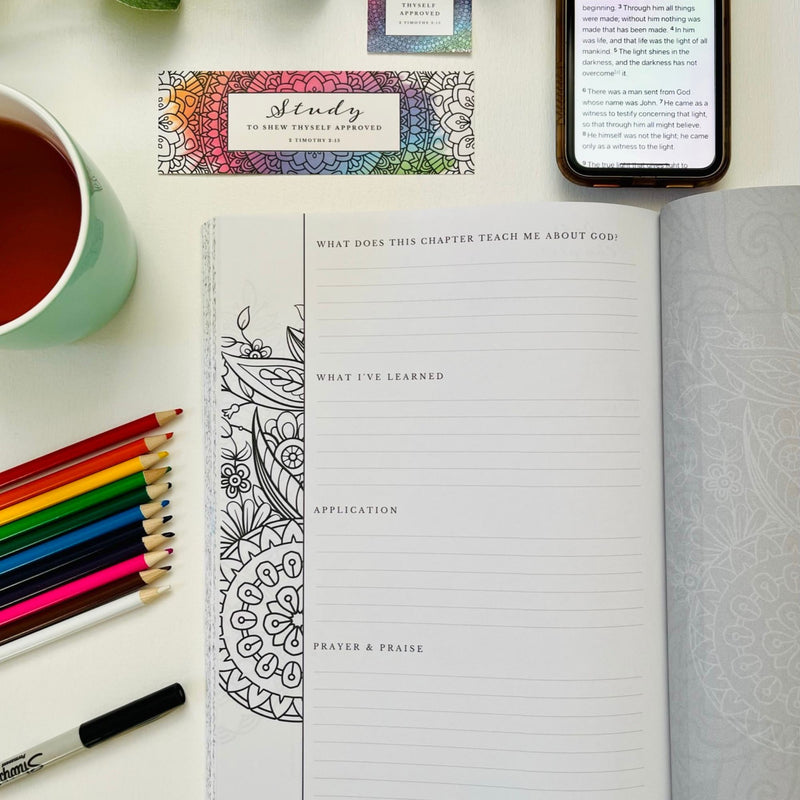 THYSELF
APPROVED
2 TIMOTHY 2:15
Study
TO SHEW THYSELF APPROVED
2 TIMOTHY 2:15
beginning. 3 Through him all things
were made; without him nothing was
made that has been made. 4 In him
was life, and that life was the light of all
mankind. 5 The light shines in the
darkness, and the darkness has not
overcome it.
6 There was a man sent from God
whose name was John. 7 He came as a
witness to testify concerning that light,
so that through him all might believe.
8 He himself was not the light; he came
only as a witness to the light.
9 The true light that gives light to
WHAT DOES THIS CHAPTER TEACH ME ABOUT GOD?
WHAT I'VE LEARNED
APPLICATION
PRAYER & PRAISE
Sharpie